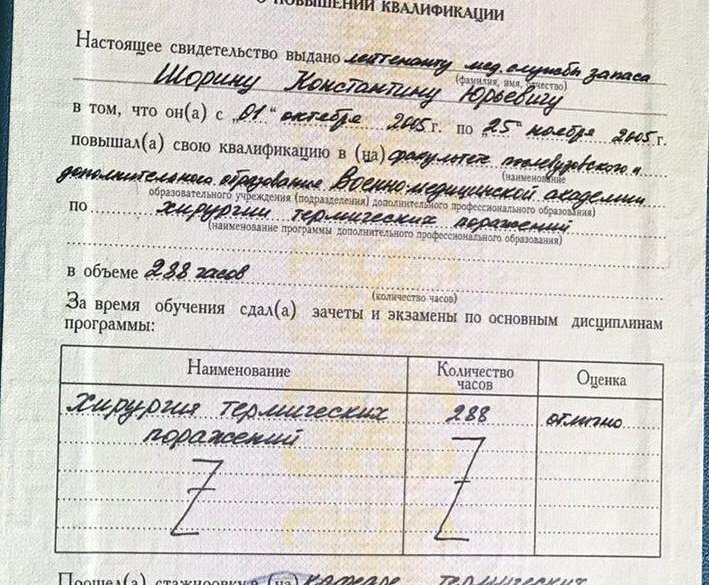 О ПОВЫШЕНИИ КВАЛИФИКАЦИИ
Настоящее свидетельство выдано лейтенанту мед. службы запаса
Шорину Константину Юрьевичу
(фамилия, имя, отчество)
в том, что он(а) с „01“ октября 2005 г. по 25 ноября 2005 г.
повышал(а) свою квалификацию в (на) факультете послевузовского и
(наименование
дополнительного образования Военно-медицинской академии
образовательного учреждения (подразделения) дополнительного профессионального образования)
по хирургии термических поражений
(наименование программы дополнительного профессионального образования)
в объеме 288 часов
(количество часов)
За время обучения сдал(а) зачеты и экзамены по основным дисциплинам
программы:
Наименование Количество часов Оценка
хирургия термических 288 отлично
поражений
Прошел(а) стажировку в (на) кафедре термических